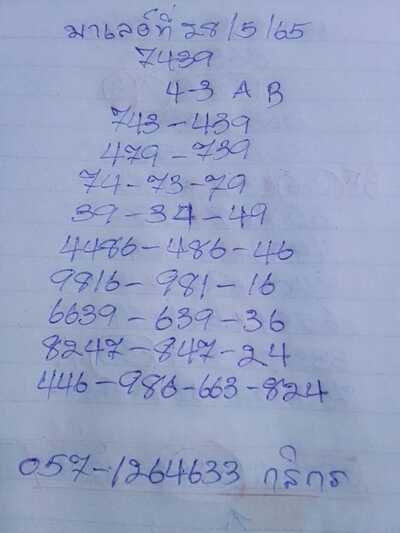 มาเลย์ที่ 28/5/65
7439
4-3 A B
743-439
479-739
74-73-79
39-34-49
4486-486-46
9816-981-16
6639-639-36
8247-847-24
446-986-663-824
057-1264633 กสิกร